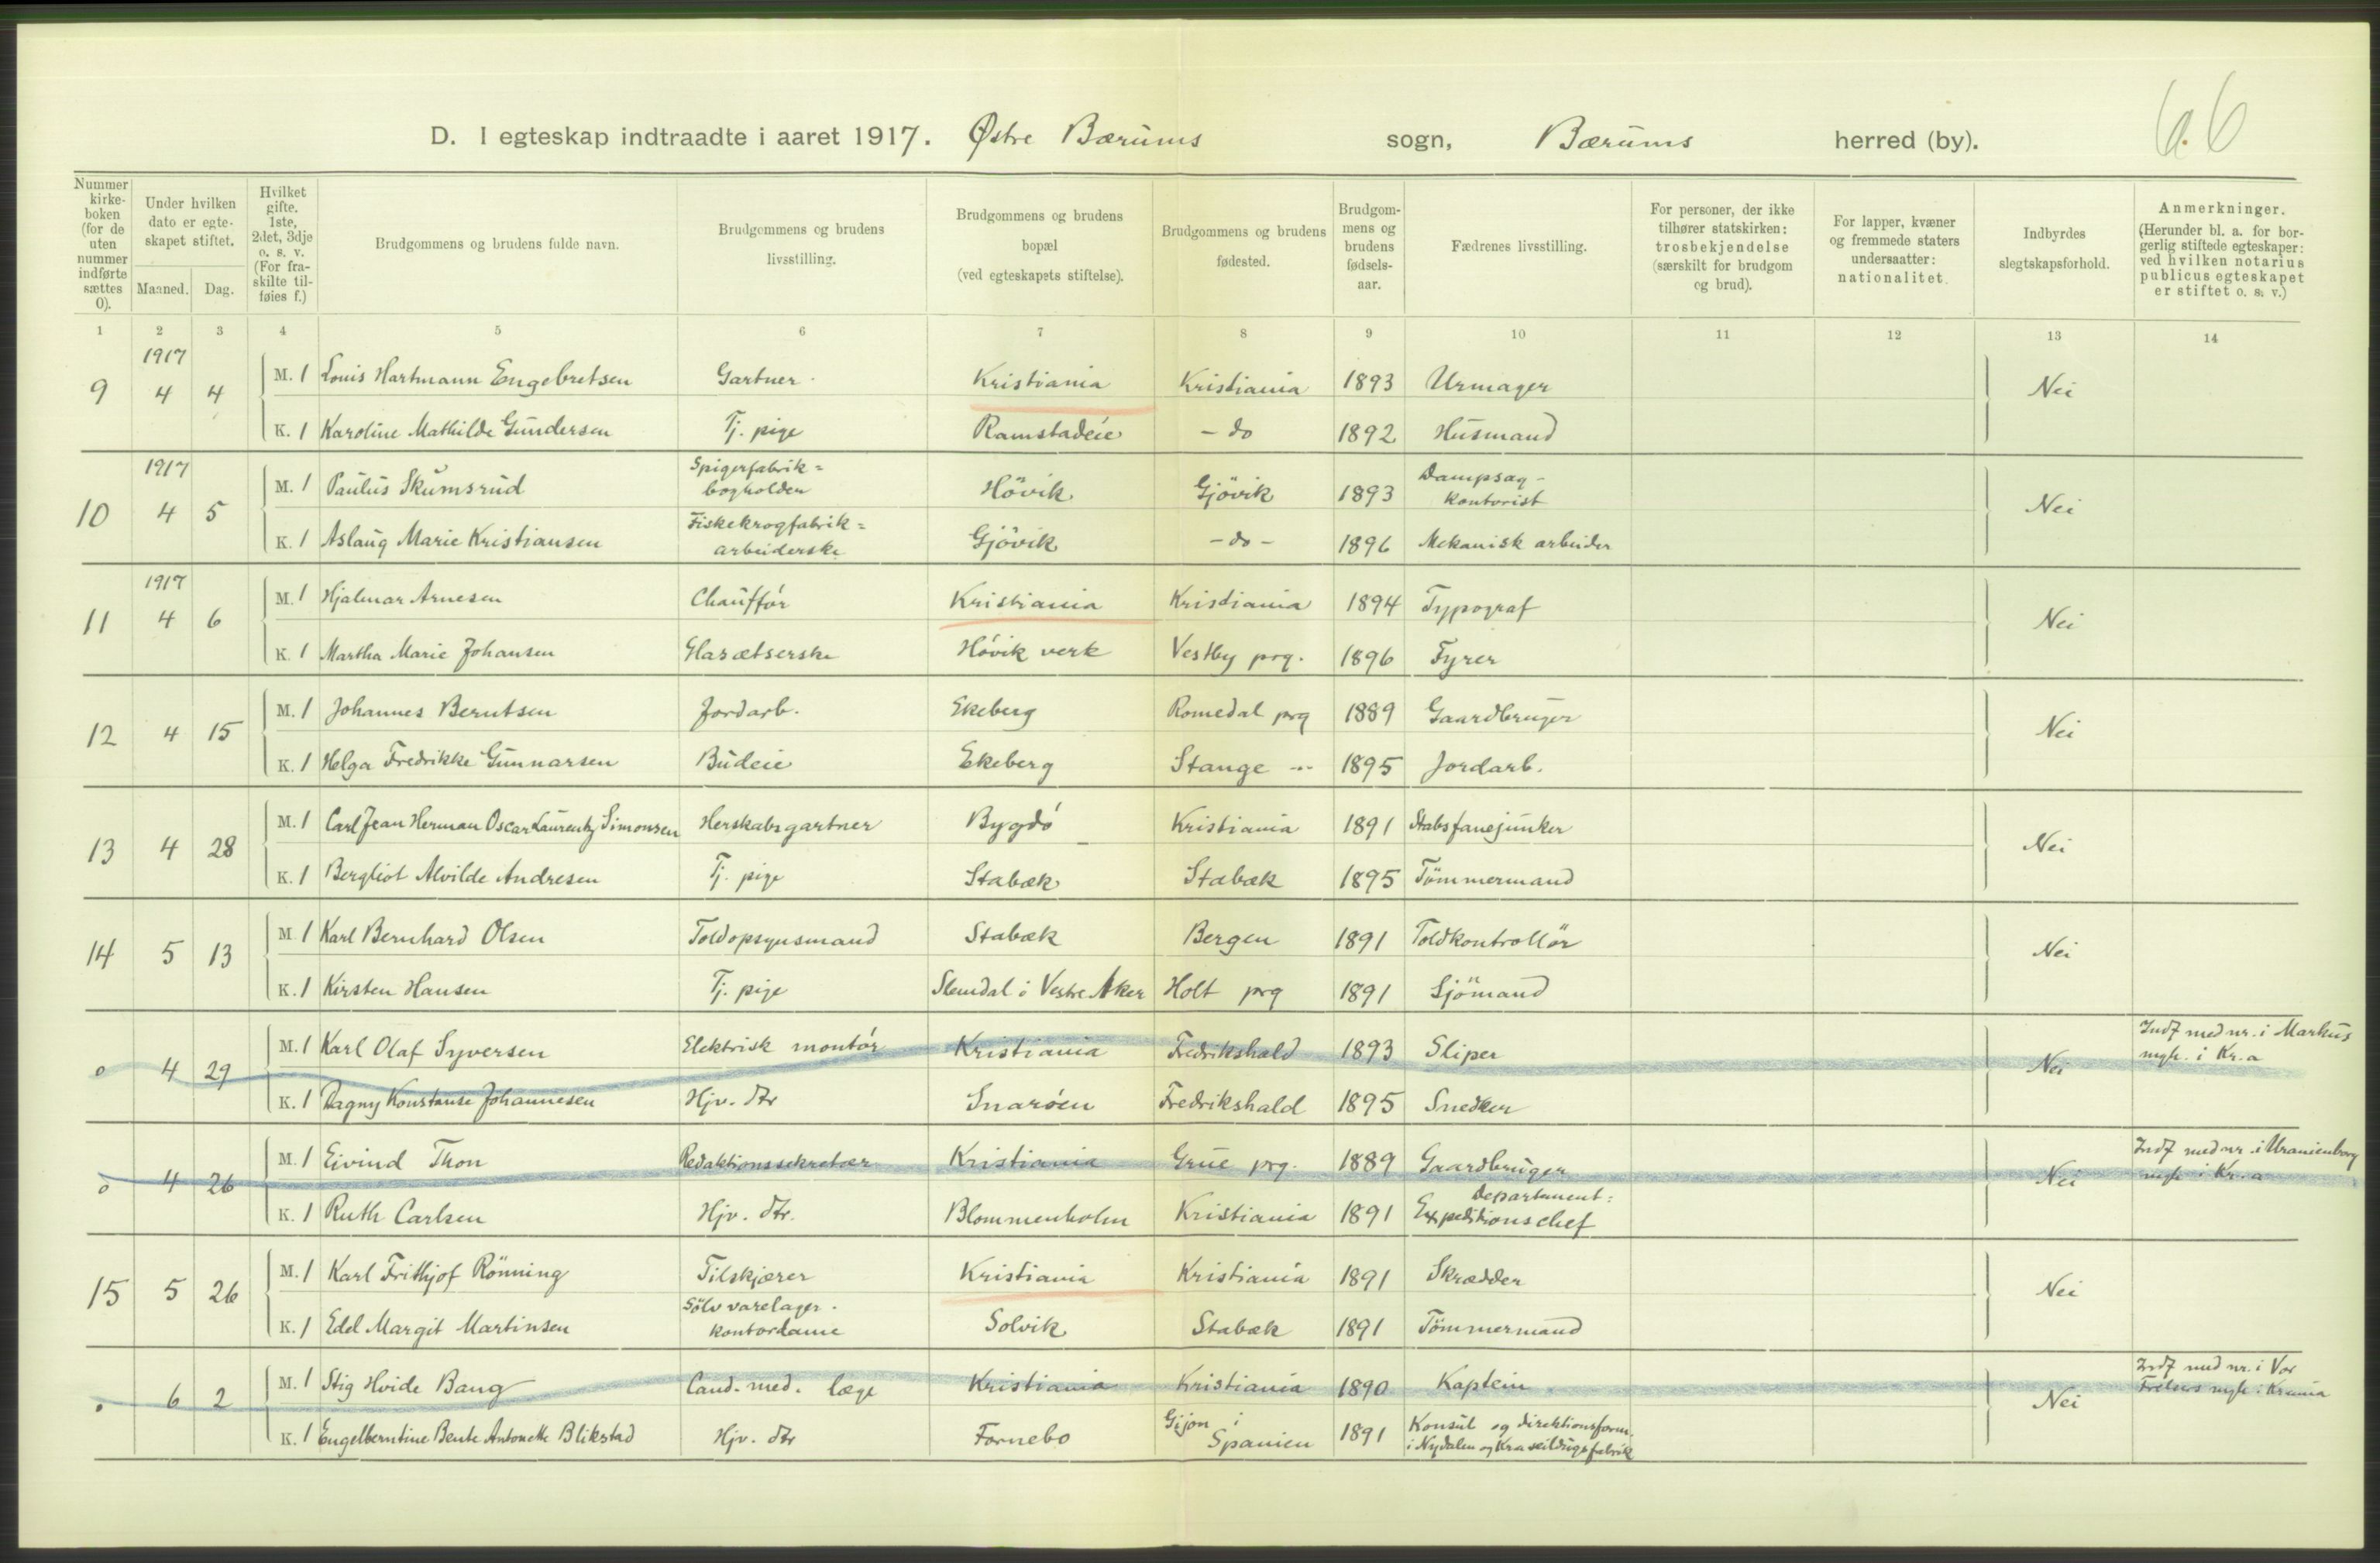 6.6
D. I egteskap indtraadte i aaret 1917. Østre Bærums sogn, Bærums herred (by).
Nummer kirke-boken (for de uten nummer indførte sættes 0). Under hvilken dato er egte-skapet stiftet. Maaned. Dag. Hvilket gifte. 1ste, 2det, 3dje o. s. v. (For fra-skilte til-føies f.) Brudgommens og brudens fulde navn. Brudgommens og brudens livsstilling. Brudgommens og brudens bopæl (ved egteskapets stiftelse). Brudgommens og brudens fødested. Brudgom-mens og brudens fødsels-aar. Fædrenes livsstilling. For personer, der ikke tilhører statskirken: trosbekjendelse (særskilt for brudgom og brud). For lapper, kvæner og fremmede staters undersaatter: nationalitet. Indbyrdes slegtskapsforhold. Anmerkninger. (Herunder bl. a. for bor-gerlig stiftede egteskaper: ved hvilken notarius publicus egteskapet er stiftet o. s. v.)
1 2 3 4 5 6 7 8 9 10 11 12 13 14
1917
9 4 4 M. 1 Louis Hartmann Engebretsen Gartner Kristiania Kristiania 1893 Urmager Nei
K. 1 Karoline Mathilde Gundersen Tj. pige Ramstadeie - do 1892 Husmand
1917
10 4 5 M. 1 Paulus Skumsrud Spigerfabrik= bogholder Hövik Gjövik 1893 Dampsag- kontorist Nei
K. 1 Aslaug Marie Kristiansen Fiskekrogfabrik= arbeiderske Gjövik - do - 1896 Mekanisk arbeider
1917
11 4 6 M. 1 Hjalmar Arnesen Chauffór Kristiania Kristiania 1894 Typograf Nei
K. 1 Martha Marie Johansen Glasætserske Hóvik verk Vestby prg. 1896 Fyrer
12 4 15 M. 1 Johannes Berntsen Jordarb. Ekeberg Romedal prg 1889 Gaardbruger Nei
K. 1 Helga Fredrikke Gunnarsen Budeie Ekeberg Stange - 1895 Jordarb.
13 4 28 M. 1 Carl Jean Herman Oscar Laurentz Simonsen Herskabsgartner Bygdó Kristiania 1891 Stabsfanejunker Nei
K. 1 Bergliot Alvilde Andresen Tj. pige Stabæk Stabæk 1895 Tömmermand
14 5 13 M 1 Karl Bernhard Olsen Toldopsynsmand Stabæk Bergen 1891 Toldkontrollör Nei
K. 1 Kirsten Hansen Tj. pige Slemdal i Vestre Aker Holt prg 1891 Sjömand
0 4 29 M. 1 Karl Olaf Syversen Elektrisk montór Kristiania Fredrikshald 1893 Sliper Nei Indf med nr. i Markus mgh. i Kr.a
K. 1 Dagny Konstanse Johannesen Hjv. dtr Snaróen Fredrikshald 1895 Snedker
0 4 26 M. 1 Eivind Thon Redaktionssekretær Kristiania Grue prg. 1889 Gaardbruger Nei Indf med nr. i Uranienborg mgh i Kr.a
K. 1 Ruth Carlsen Hjv. dtr. Blommenholm Kristiania 1891 Departement: Expeditionschef
15 5 26 M. 1 Karl Frithjof Rönning Tilskjærer Kristiania Kristiania 1891 Skrædder Nei
K. 1 Edel Margit Martinsen Sölvvarelager- kontordame Solvik Stabæk 1891 Tömmermand
0 6 2 M. 1 Stig Hvide Bang Cand. med. læge Kristiania Kristiania 1890 Kaptein Nei Indf med nr. i Vor Frelsers mgh i Krania
K. 1 Engelberntine Bente Antonette Blikstad Hjv. dtr Fornebo Gijon i Spanien 1891 Konsul og direktionsform. i Nydalen og Kra seildugsfabrik